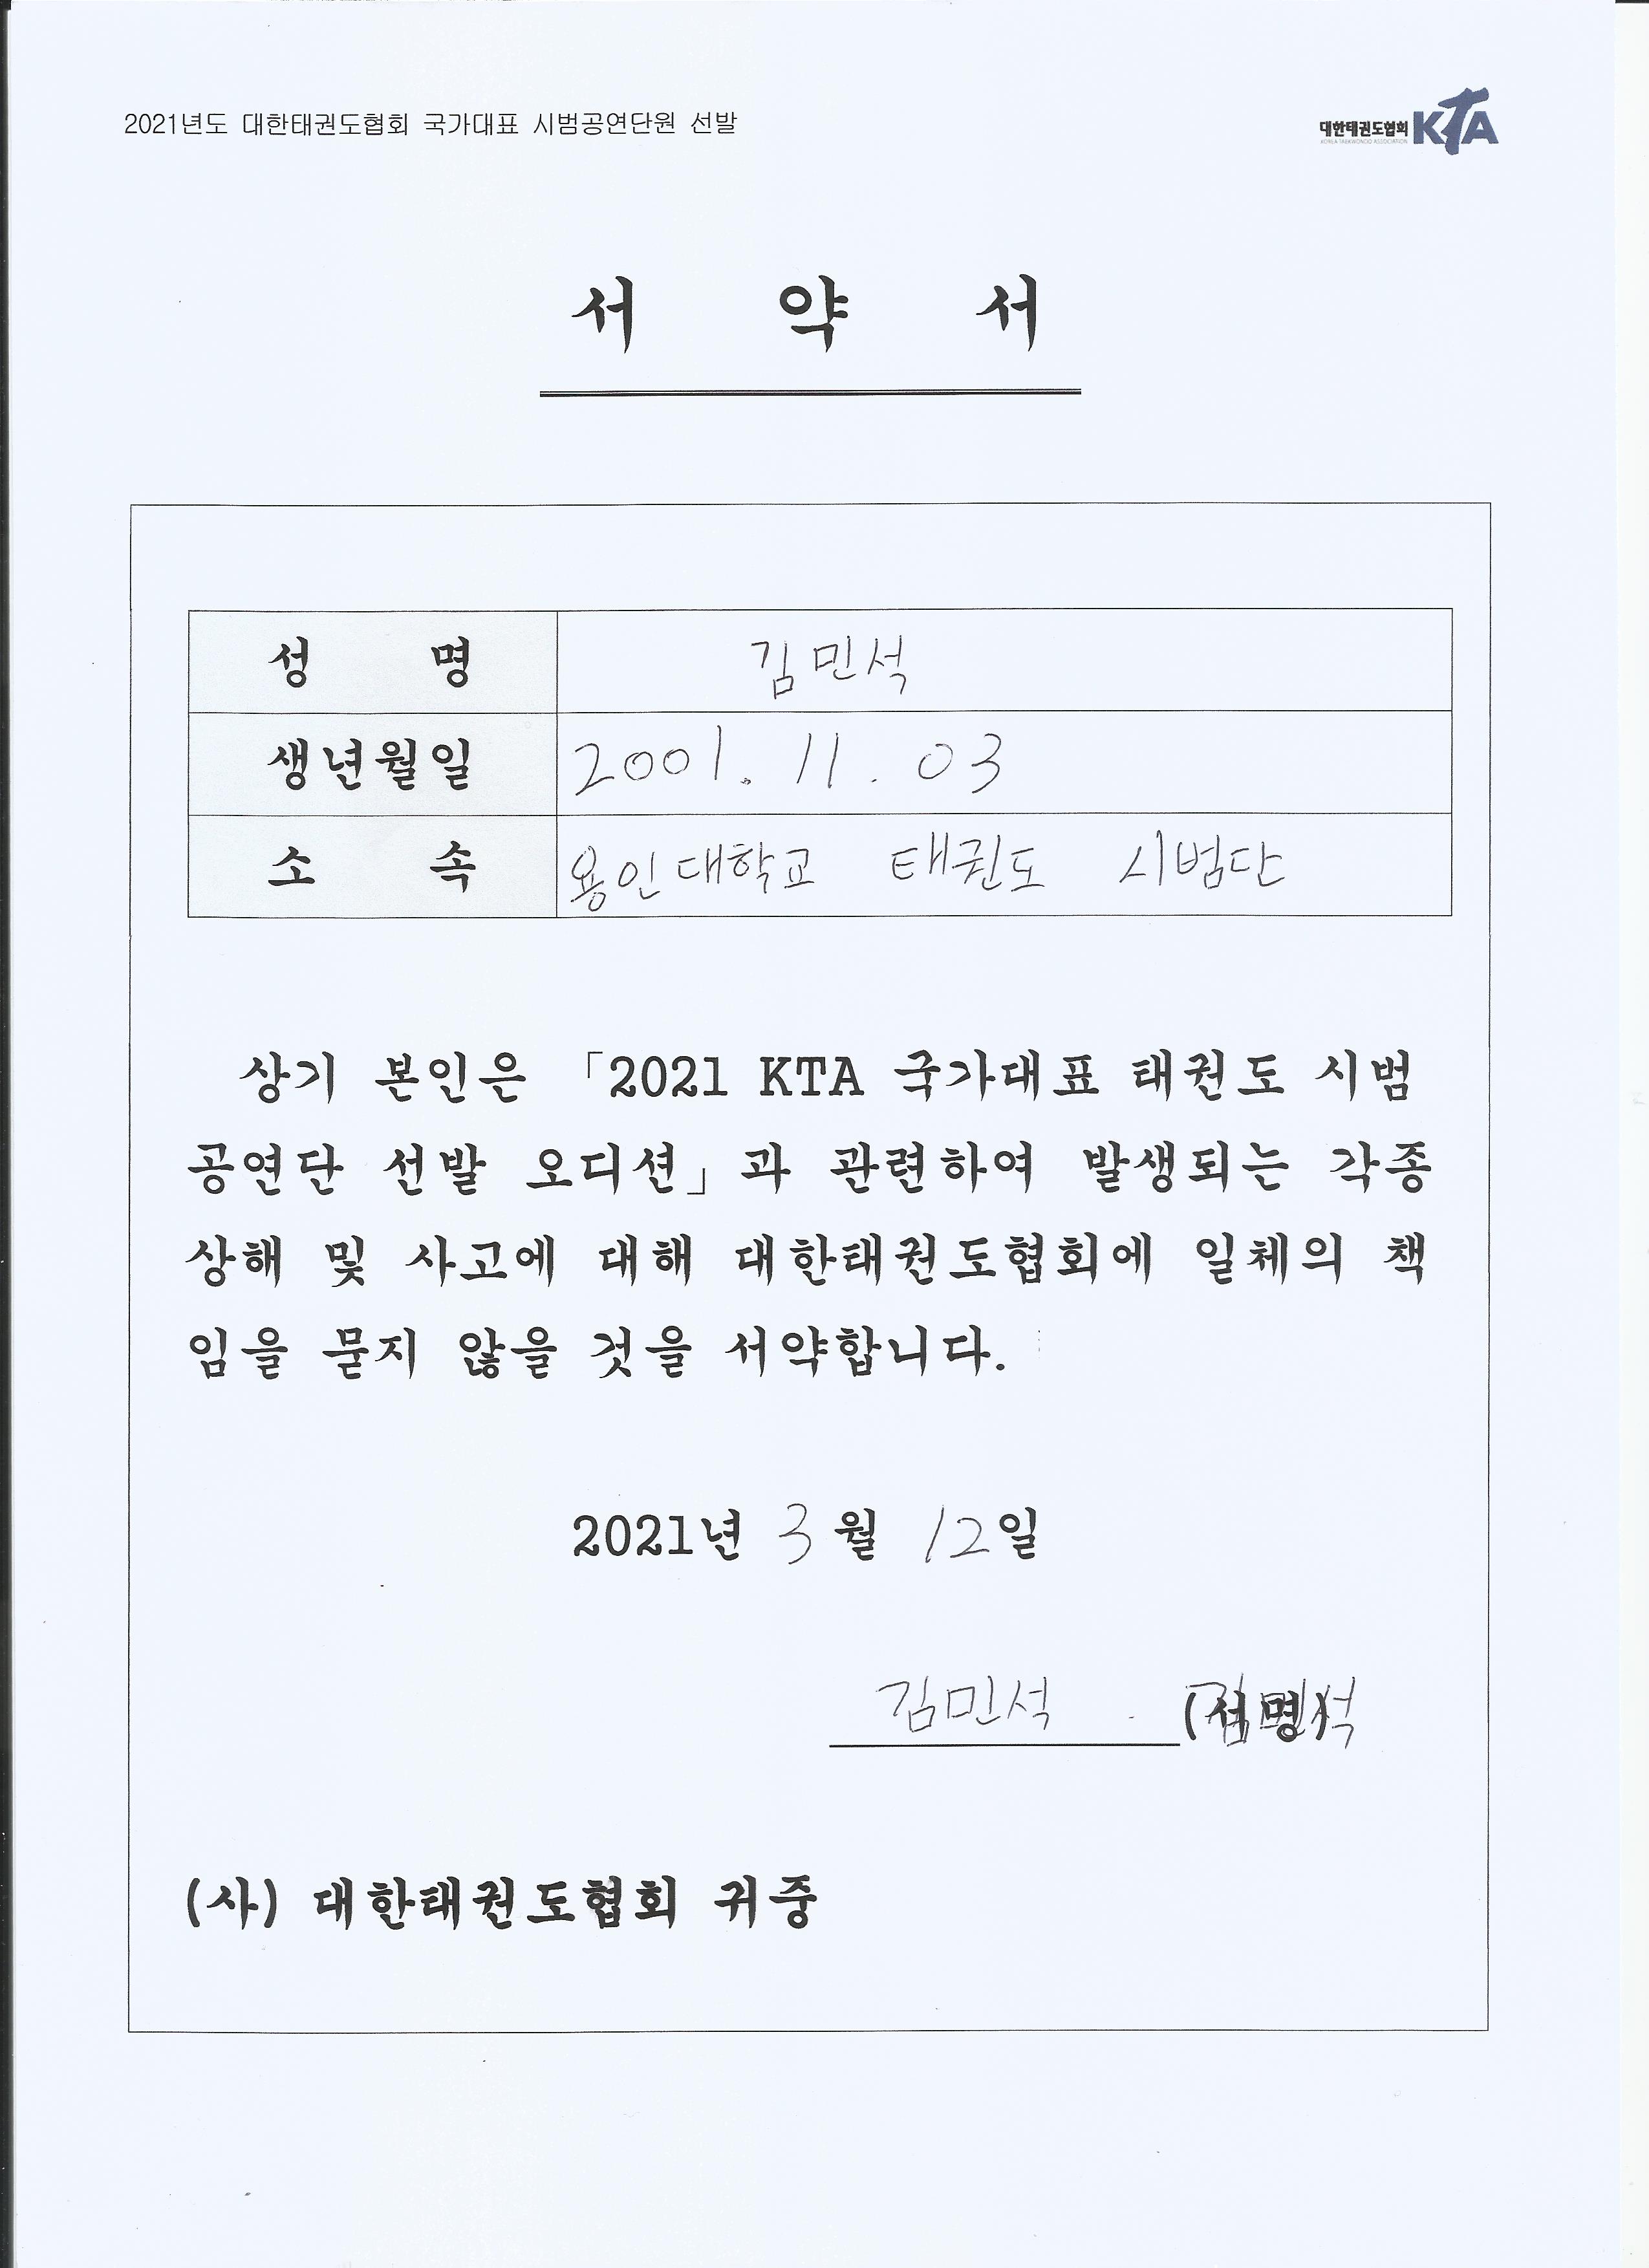 2021년도 대한태권도협회 국가대표 시범공연단원 선발
대한태권도협회 KTA
KOREA TAEKWONDO ASSOCIATION
서 약 서
성 명 김민석
생년월일 2001. 11. 03
소 속 용인대학교 태권도 시범단
상기 본인은 「2021 KTA 국가대표 태권도 시범
공연단 선발 오디션」과 관련하여 발생되는 각종
상해 및 사고에 대해 대한태권도협회에 일체의 책
임을 묻지 않을 것을 서약합니다.
2021년 3월 12일
김민석 (서명) 김민석
(사) 대한태권도협회 귀중